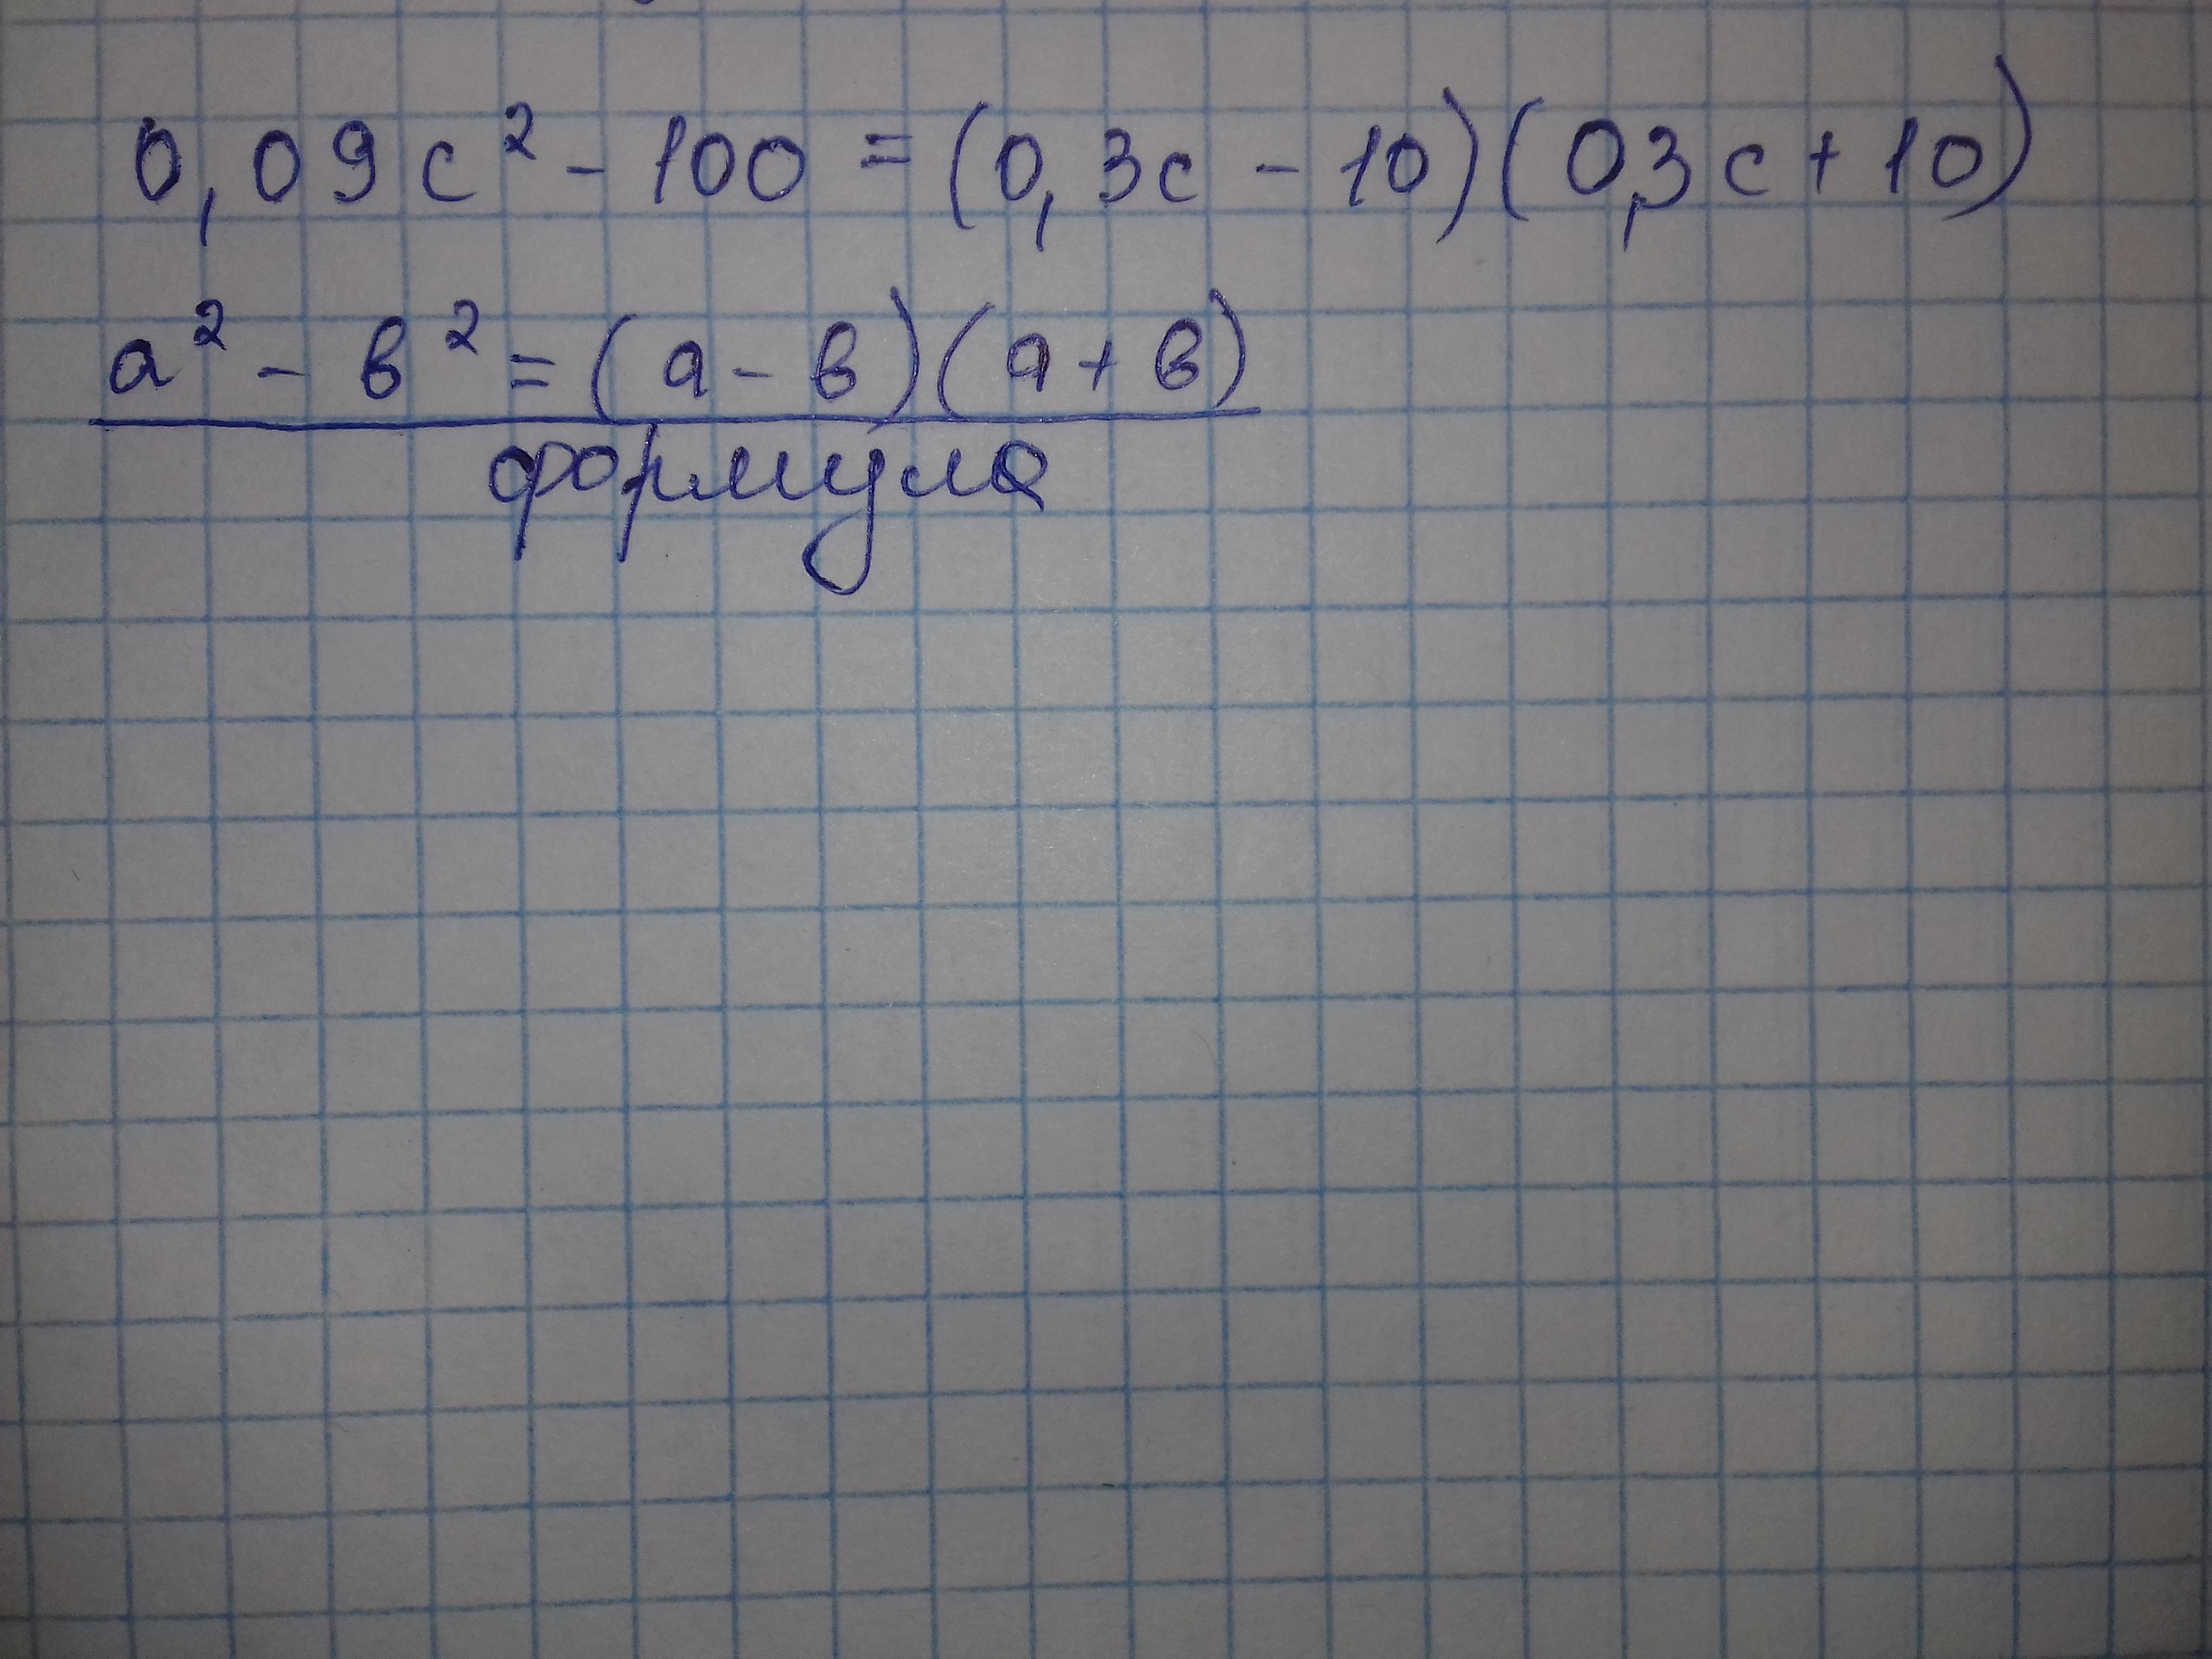 0,09c² - 100 = (0,3c - 10)(0,3c + 10)
a² - в² = (a - в)(a + в)
формула